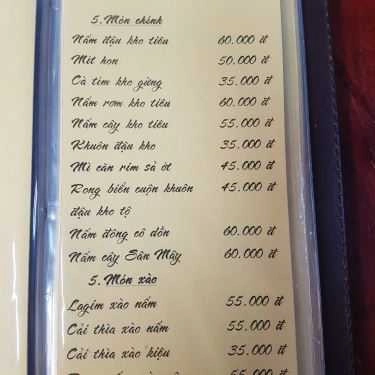 5. Món chính
Nấm đậu kho tiêu 60.000 đ
Mít hon 50.000 đ
Cà tím kho gừng 35.000 đ
Nấm rơm kho tiêu 60.000 đ
Nấm cây kho tiêu 55.000 đ
Khuôn đậu kho 35.000 đ
Mì căn rim sả ớt 45.000 đ
Rong biển cuộn khuôn 45.000 đ
đậu kho tộ
Nấm đông cô dồn 60.000 đ
Nấm cây Sân Mây 60.000 đ
5. Món xào
Lagim xào nấm 55.000 đ
Cải thìa xào nấm 55.000 đ
Cải thìa xào kiệu 35.000 đ
55.000 đ